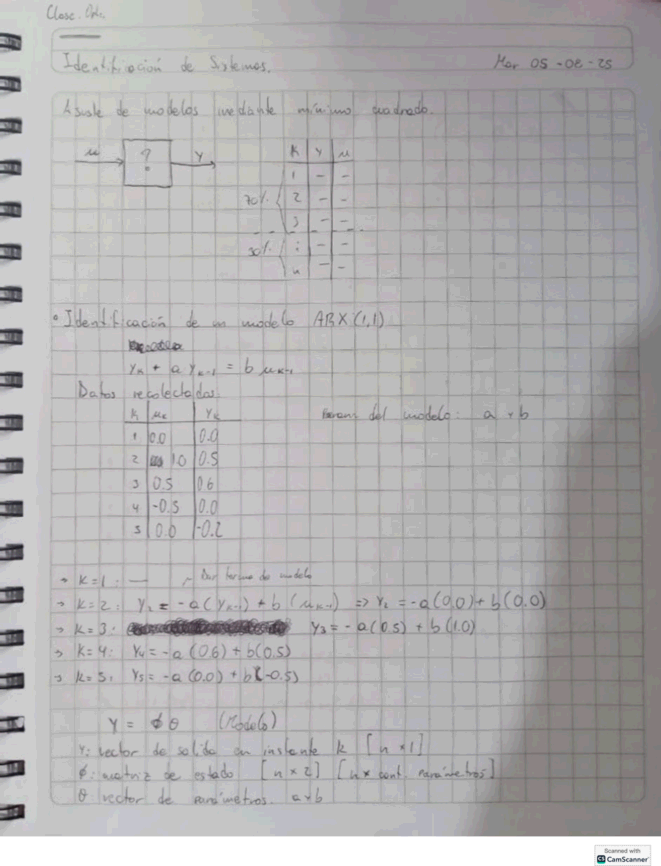 Clase
Identificación de Sistemas. Mar 05-08-25
Ajuste de modelos mediante mínimo cuadrado.
u ? y
K Y u
1 - -
70% 2 - -
3 - -
30% i - -
n - -
• Identificación de un modelo ARX (1,1)
Yk + a Yk-1 = b uk-1
Datos recolectados:
K uk Yk Param del modelo: a y b
1 0.0 0.0
2 1.0 0.5
3 0.5 0.6
4 -0.5 0.0
5 0.0 -0.2
→ K=1: — Dar forma de modelo
→ K=2: Y2 = -a(Yk-1) + b(uk-1) => Y2 = -a(0.0)+b(0.0)
→ K=3: Y3 = -a(0.5) + b(1.0)
→ K=4: Y4 = -a(0.6) + b(0.5)
→ K=5: Y5 = -a(0.0) + b(-0.5)
Y = ϕ θ (Modelo)
Y: vector de salida en instante K [n×1]
ϕ: matriz de estado [n×2] [n× cant. parámetros]
θ: vector de parámetros. a y b
Scanned with
CS CamScanner